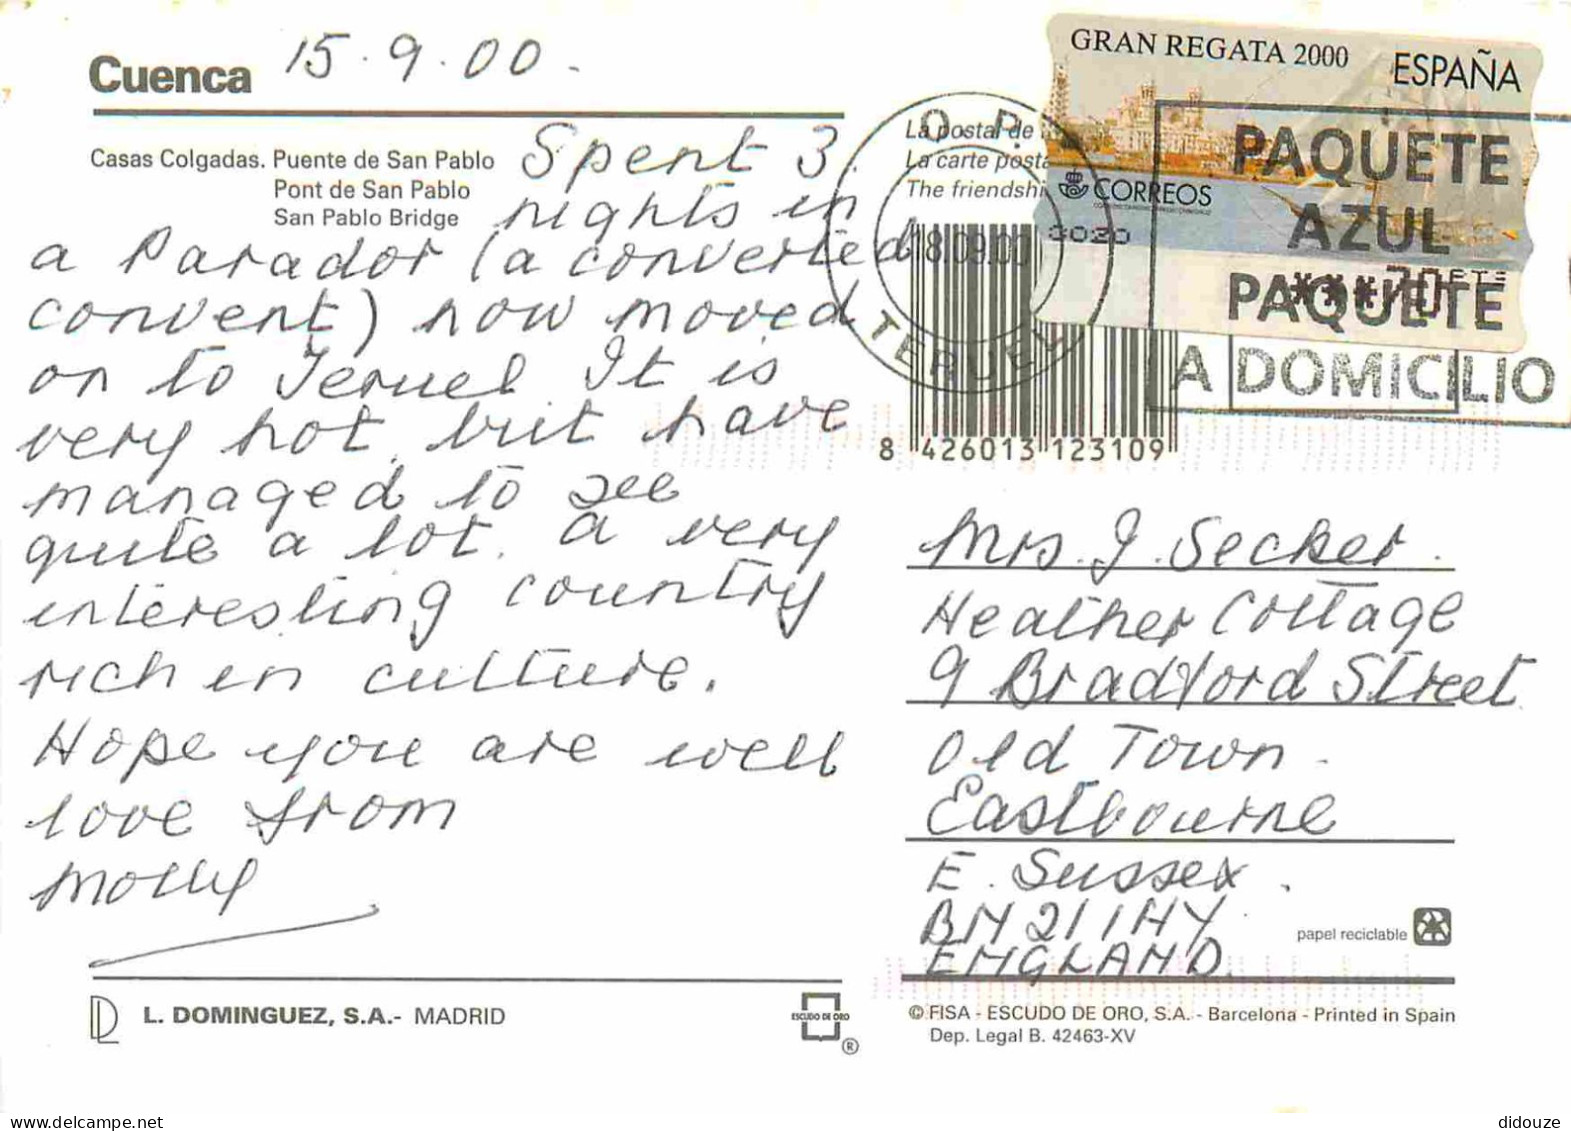 Cuenca
15.9.00.
Casas Colgadas. Puente de San Pablo
Pont de San Pablo
San Pablo Bridge
Spent 3
nights in
a Parador (a converted
convent) now moved
on to Teruel It is
very hot, but have
managed to see
quite a lot. a very
interesting country
rich in culture.
Hope you are well
love from
Molly
L. DOMINGUEZ, S.A.- MADRID
ESCUDO DE ORO
®
La postal de
La carte posta
The friendshi
O. P.
18.09.00
TERUEL
GRAN REGATA 2000
ESPAÑA
CORREOS
PAQUETE
AZUL
PAQUETE
A DOMICILIO
8 426013 123109
Mrs. J. Secker.
Heather Cottage
9 Bradford Street
Old Town.
Eastbourne
E. Sussex.
BN21 1HY
ENGLAND.
papel reciclable
© FISA - ESCUDO DE ORO, S.A. - Barcelona - Printed in Spain
Dep. Legal B. 42463-XV
didouze